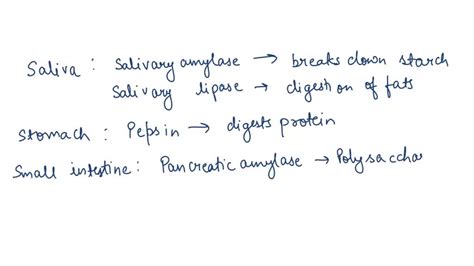 Saliva : Salivary amylase → breaks down starch
Salivary lipase → digestion of fats
Stomach : Pepsin → digests protein
Small intestine : Pancreatic amylase → Polysacchar